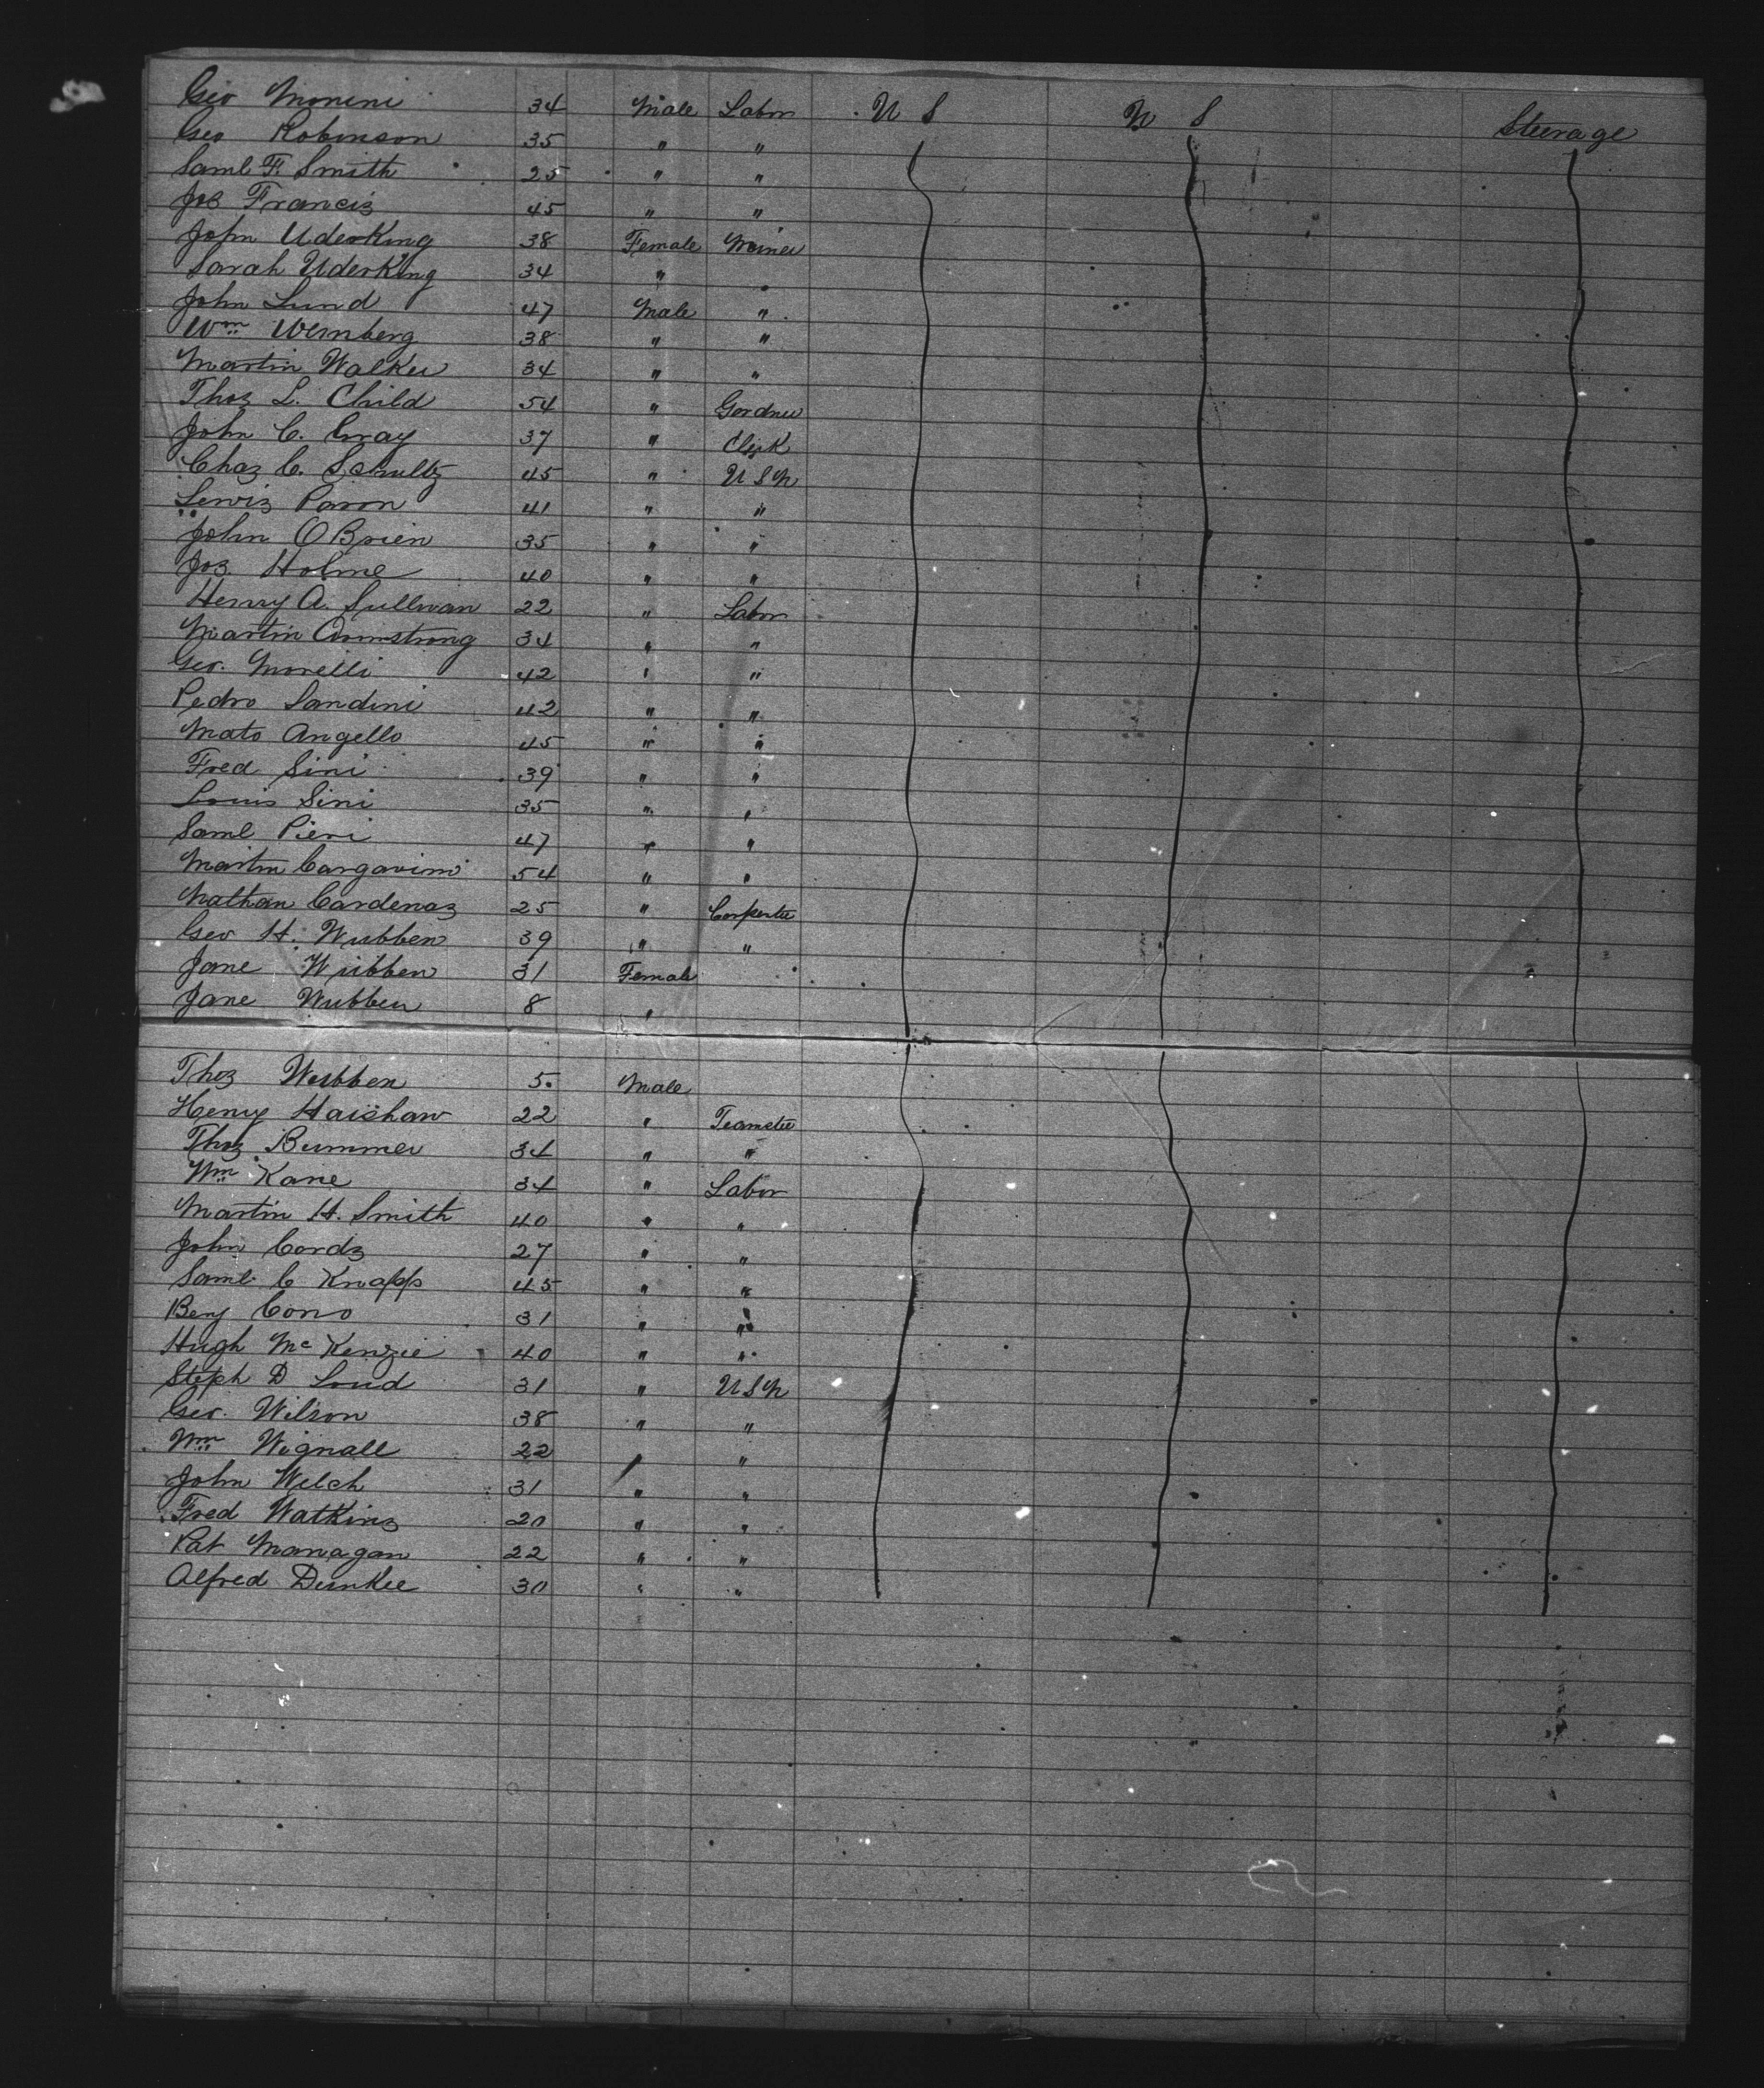 Geo Monini 34 Male Labor U S U S Steerage
Geo Robinson 35 " "
Saml F. Smith 25 " "
Jos Francis 45 " "
John Uderking 38 Female Miner
Sarah Uderking 34 "
John Lund 47 Male "
Wm Wernberg 38 " "
Martin Walker 34 " "
Thos L. Child 54 " Gardner
John C. Gray 37 " Clerk
Chas C. Schultz 45 " U S N
Lewis Paron 41 " "
John OBrien 35 " "
Jos Holme 40 " "
Henry A. Sullivan 22 " Labor
Martin Armstrong 34 " "
Geo. Morelli 42 " "
Pedro Sandini 42 " "
Mato Angello 45 " "
Fred Sini 39 " "
Louis Sini 35 " "
Saml Pieri 47 " "
Martin 54 " "
Nathan Cardenas 25 " Carpenter
Geo H. Wubben 39 " "
Jane Wubben 31 Female
Jane Wubben 8 "
Thos Wubben 5 Male
Henry Haishaw 22 " Teamster
Thos Bummer 34 " "
Wm Kane 34 " Labor
Martin H. Smith 40 " "
John Cords 27 " "
Saml C Knapp 45 " "
Benj Cono 31 " "
Hugh McKenzie 40 " "
Steph D Loud 31 " U S N
Geo. Wilson 38 " "
Wm Wignall 22 " "
John Welch 31 " "
Fred Watkins 20 " "
Pat Managan 22 " "
Alfred Dunkee 30 " "